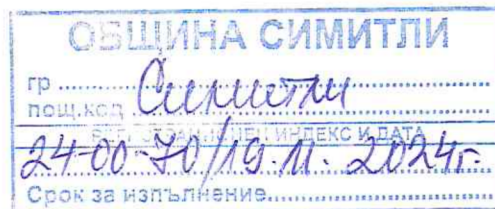 ОБЩИНА СИМИТЛИ
гр ........ Симитли
пощ.код
РЕГИСТРАЦИОНЕН ИНДЕКС И ДАТА
24-00-70/19.11.2024г.
Срок за изпълнение..............